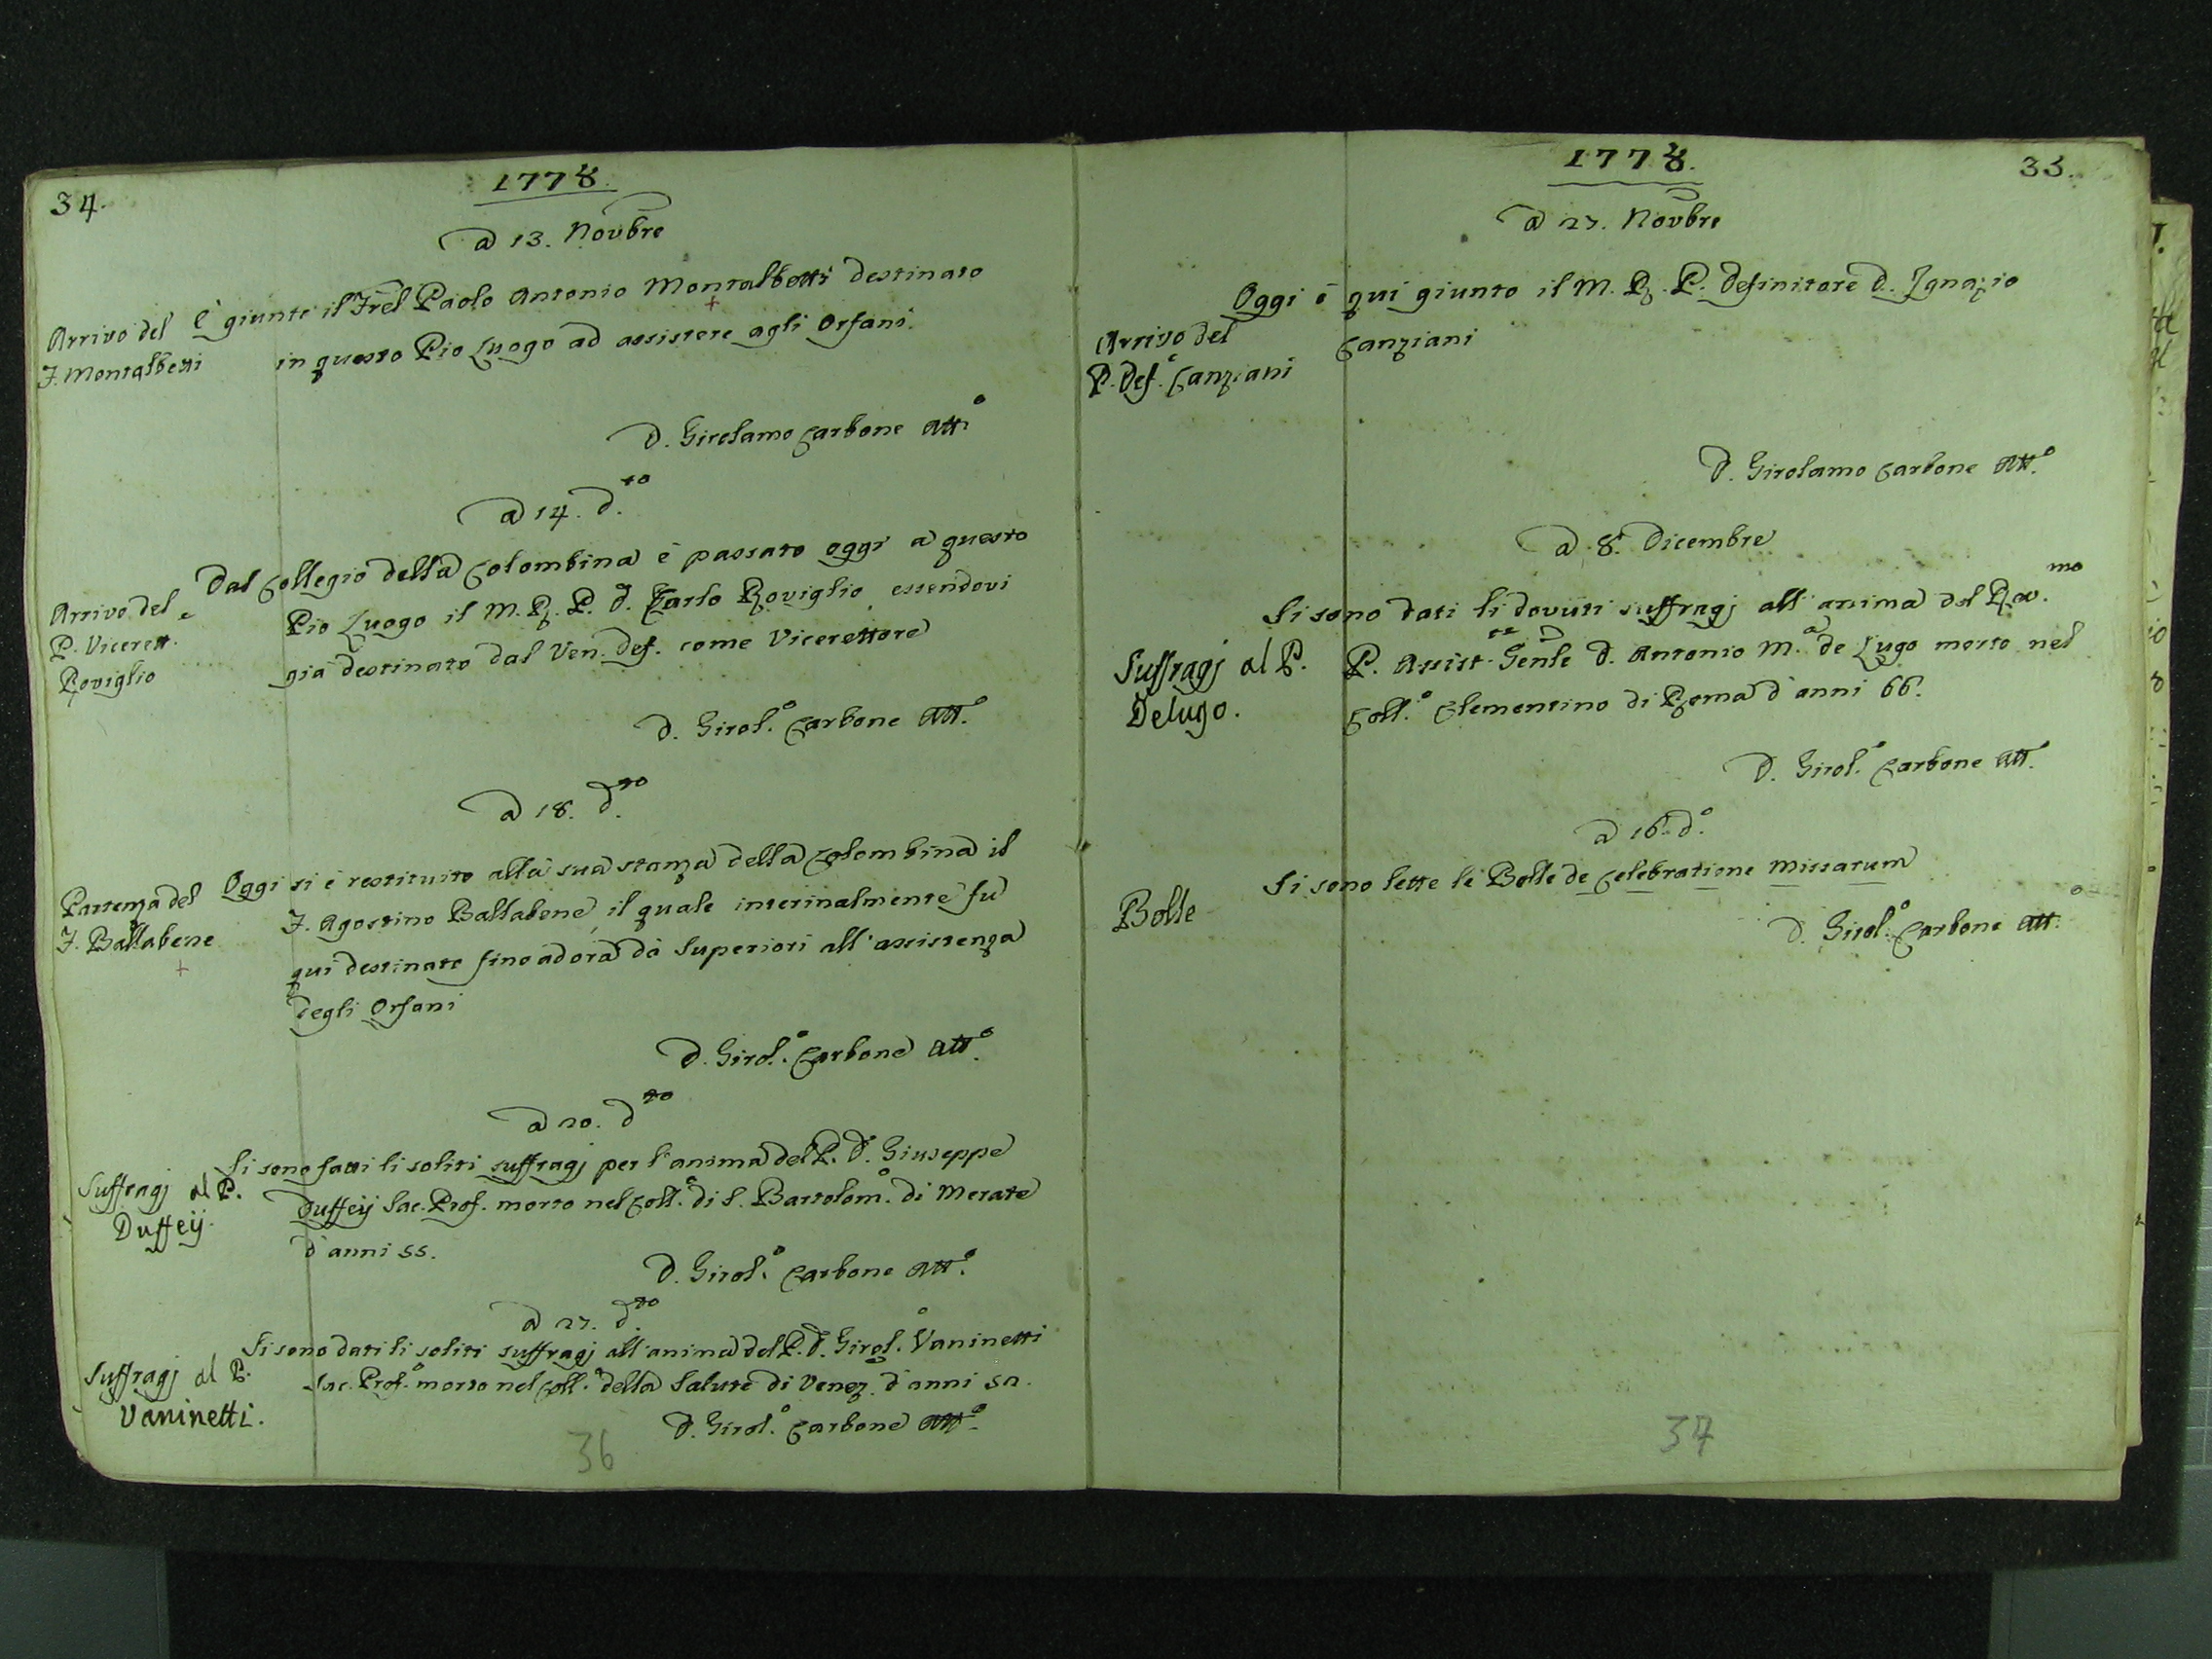 34.
1778.
a 13. Novbre
Arrivo del
F. Montalbetti
è giunto il Frel Paolo Antonio Montalbetti destinato
in questo Pio Luogo ad assistere agli Orfani.
D. Girolamo Carbone Att.o
a 14. d.to
Arrivo del
P. Vicerett.e
Roviglio
Dal Collegio della Colombina è passato oggi a questo
Pio Luogo il M. R. P. D. Carlo Roviglio, essendovi
già destinato dal Ven. Def. come Vicerettore
D. Girol.o Carbone Att.o
a 18. d.to
Partenza del
F. Ballabene
Oggi si è restituito alla sua stanza della Colombina il
F. Agostino Ballabene, il quale interinalmente fu
qui destinato fino adora da Superiori all'assistenza
degli Orfani
D. Girol.o Carbone Att.o
a 20. d.to
Suffragj al P.
Duffeÿ.
Si sono fatti li soliti suffragj per l'anima del P. D. Giuseppe
Duffeÿ Sac. Prof. morto nel Coll.o di S. Bartolom.o di Merate
d'anni 55.
D. Girol.o Carbone Att.o
a 27. d.to
Suffragj al P.
Vaninetti.
Si sono dati li soliti suffragj all'anima del P. D. Girol.o Vaninetti
Sac. Prof.o morto nel Coll.o della Salute di Venez. d'anni 52.
D. Girol.o Carbone Att.o
36
1778.
35.
a 27. Novbre
Arrivo del
P. Def.e Canziani
Oggi è qui giunto il M. R. P. Definitore D. Ignazio
Canziani
D. Girolamo Carbone Att.o
a 8. Dicembre
Suffragj al P.
Delugo.
Si sono dati li dovuti suffragj all'anima del Rev.mo
P. Assist.te Genle D. Antonio M.a de Lugo morto nel
Coll.o Clementino di Roma d'anni 66.
D. Girol.o Carbone Att.o
a 16. d.o
Bolle
Si sono lette le Bolle de Celebratione Missarum
D. Girol.o Carbone Att.o
37